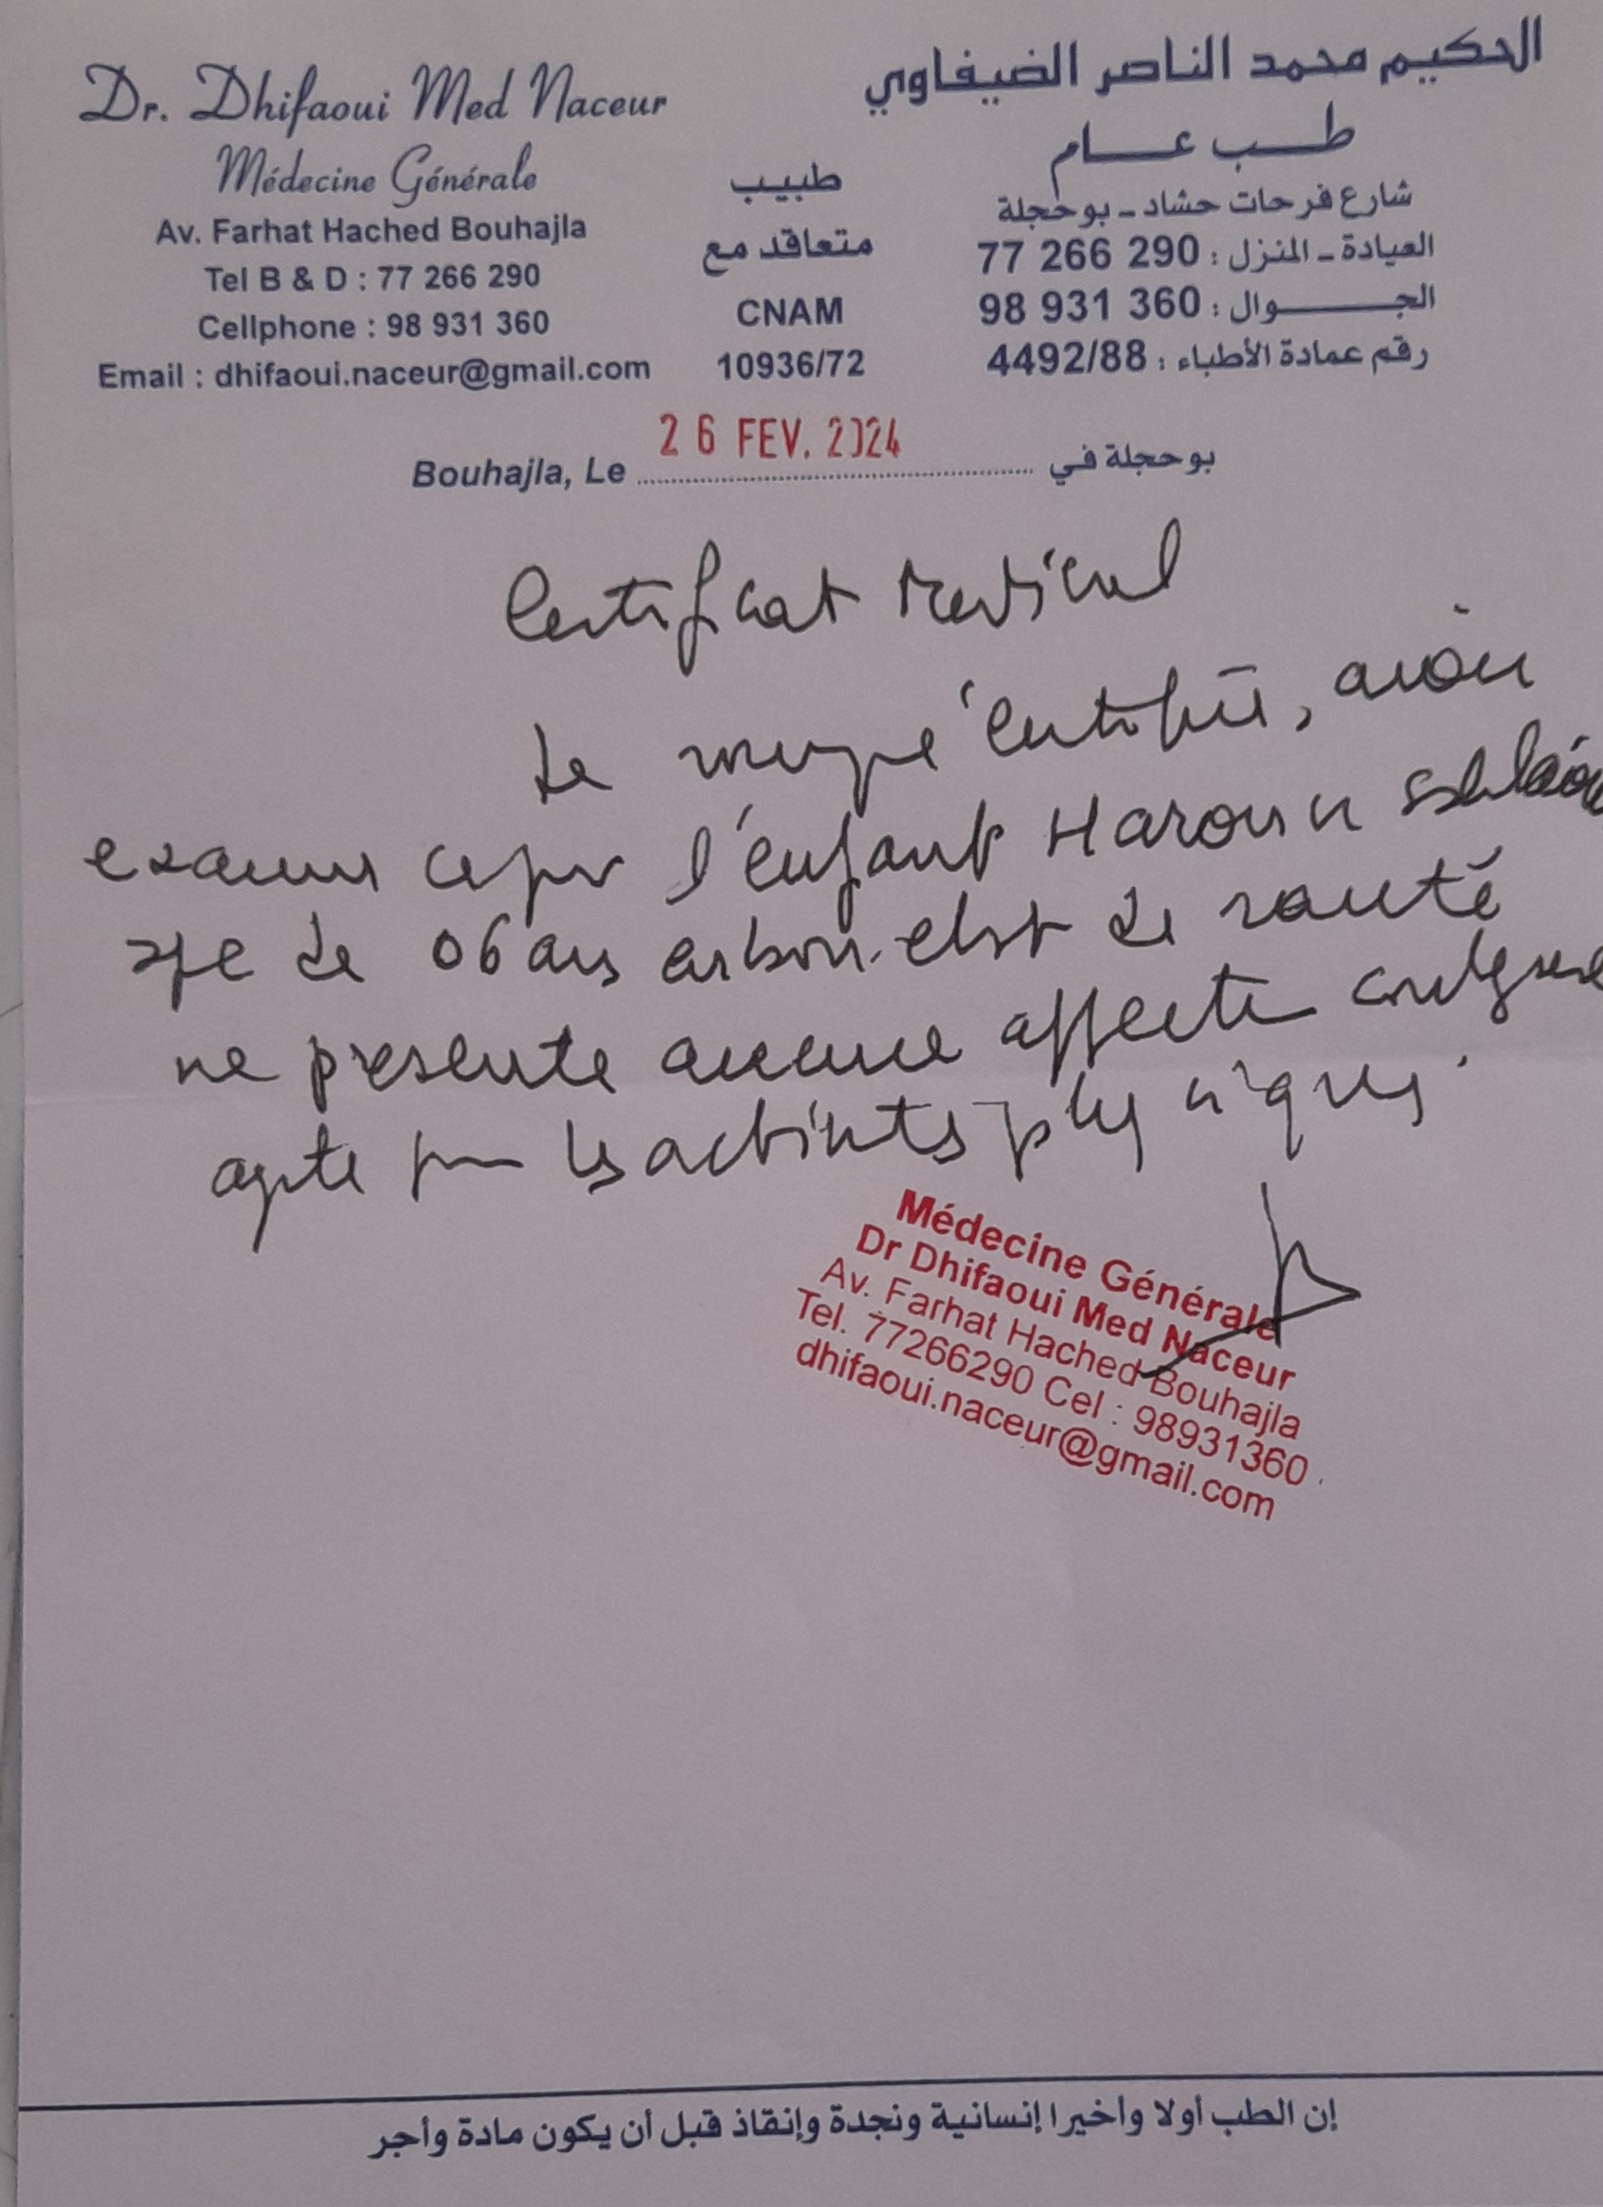 Dr. Dhifaoui Med Naceur
Médecine Générale
Av. Farhat Hached Bouhajla
Tel B & D : 77 266 290
Cellphone : 98 931 360
Email : dhifaoui.naceur@gmail.com
طبيب
متعاقد مع
CNAM
10936/72
الحكيم محمد الناصر الضيفاوي
طب عام
شارع فرحات حشاد - بوحجلة
العيادة - المنزل : 77 266 290
الجوال : 98 931 360
رقم عمادة الأطباء : 4492/88
Bouhajla, Le 26 FEV. 2024 بوحجلة في
Certificat Medical
Je certifie, avoir
examiné ce jour l'enfant Haroun
age de 06 ans en bon etat de santé
ne presente aucune affection contagieuse
apte pour les activités physiques.
Médecine Générale
Dr Dhifaoui Med Naceur
Av. Farhat Hached Bouhajla
Tel. 77266290 Cel : 98931360
dhifaoui.naceur@gmail.com
إن الطب أولا وأخيرا إنسانية ونجدة وإنقاذ قبل أن يكون مادة وأجر